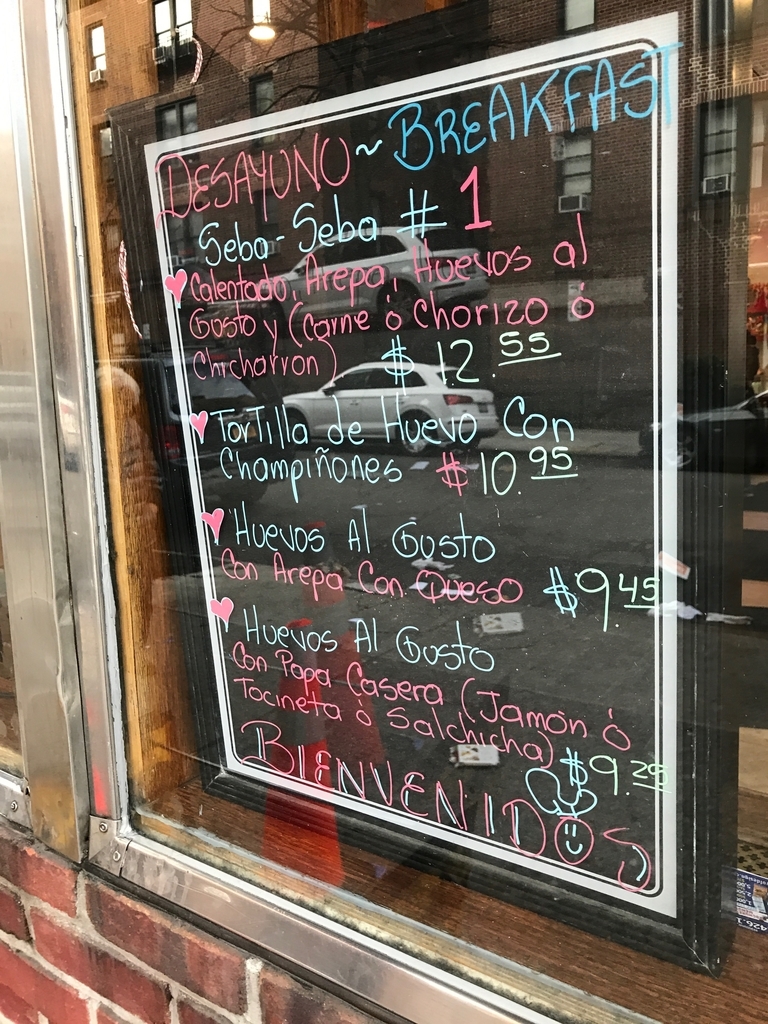 DESAYUNO ~ BREAKFAST
Seba-Seba # 1
Calentado, Arepa, Huevos al
Gusto y (Carne ó Chorizo ó
Chicharron) $12.55
Tortilla de Huevo Con
Champiñones $10.95
Huevos Al Gusto
Con Arepa Con Queso $9.45
Huevos Al Gusto
Con Papa Casera (Jamón ó
Tocineta ó Salchicha) $9.25
BIENVENIDOS